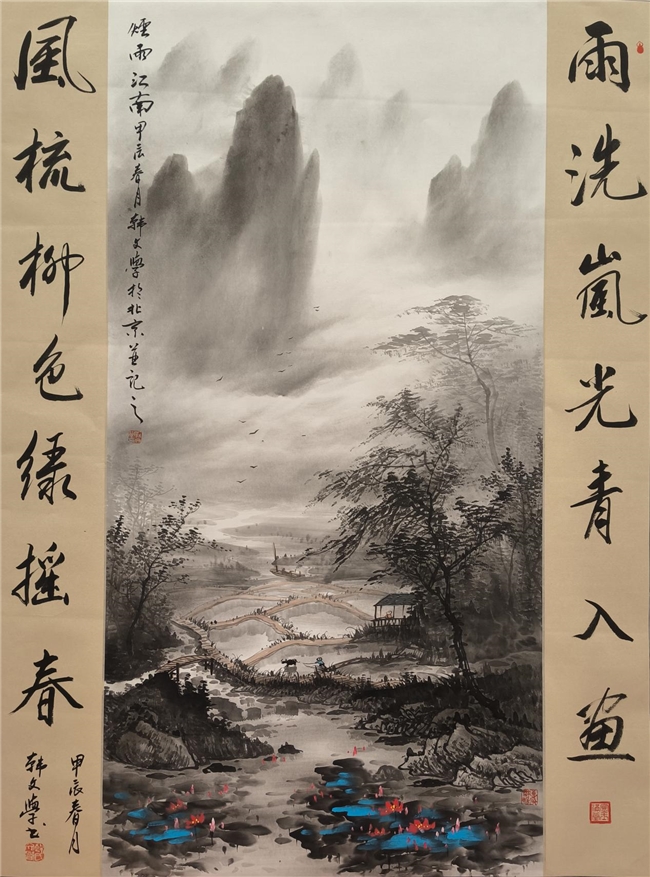 雨洗嵐光青入畫
煙雨江南甲辰春月韩文學於北京並记之
風梳柳色绿摇春
甲辰春月
韩文學书